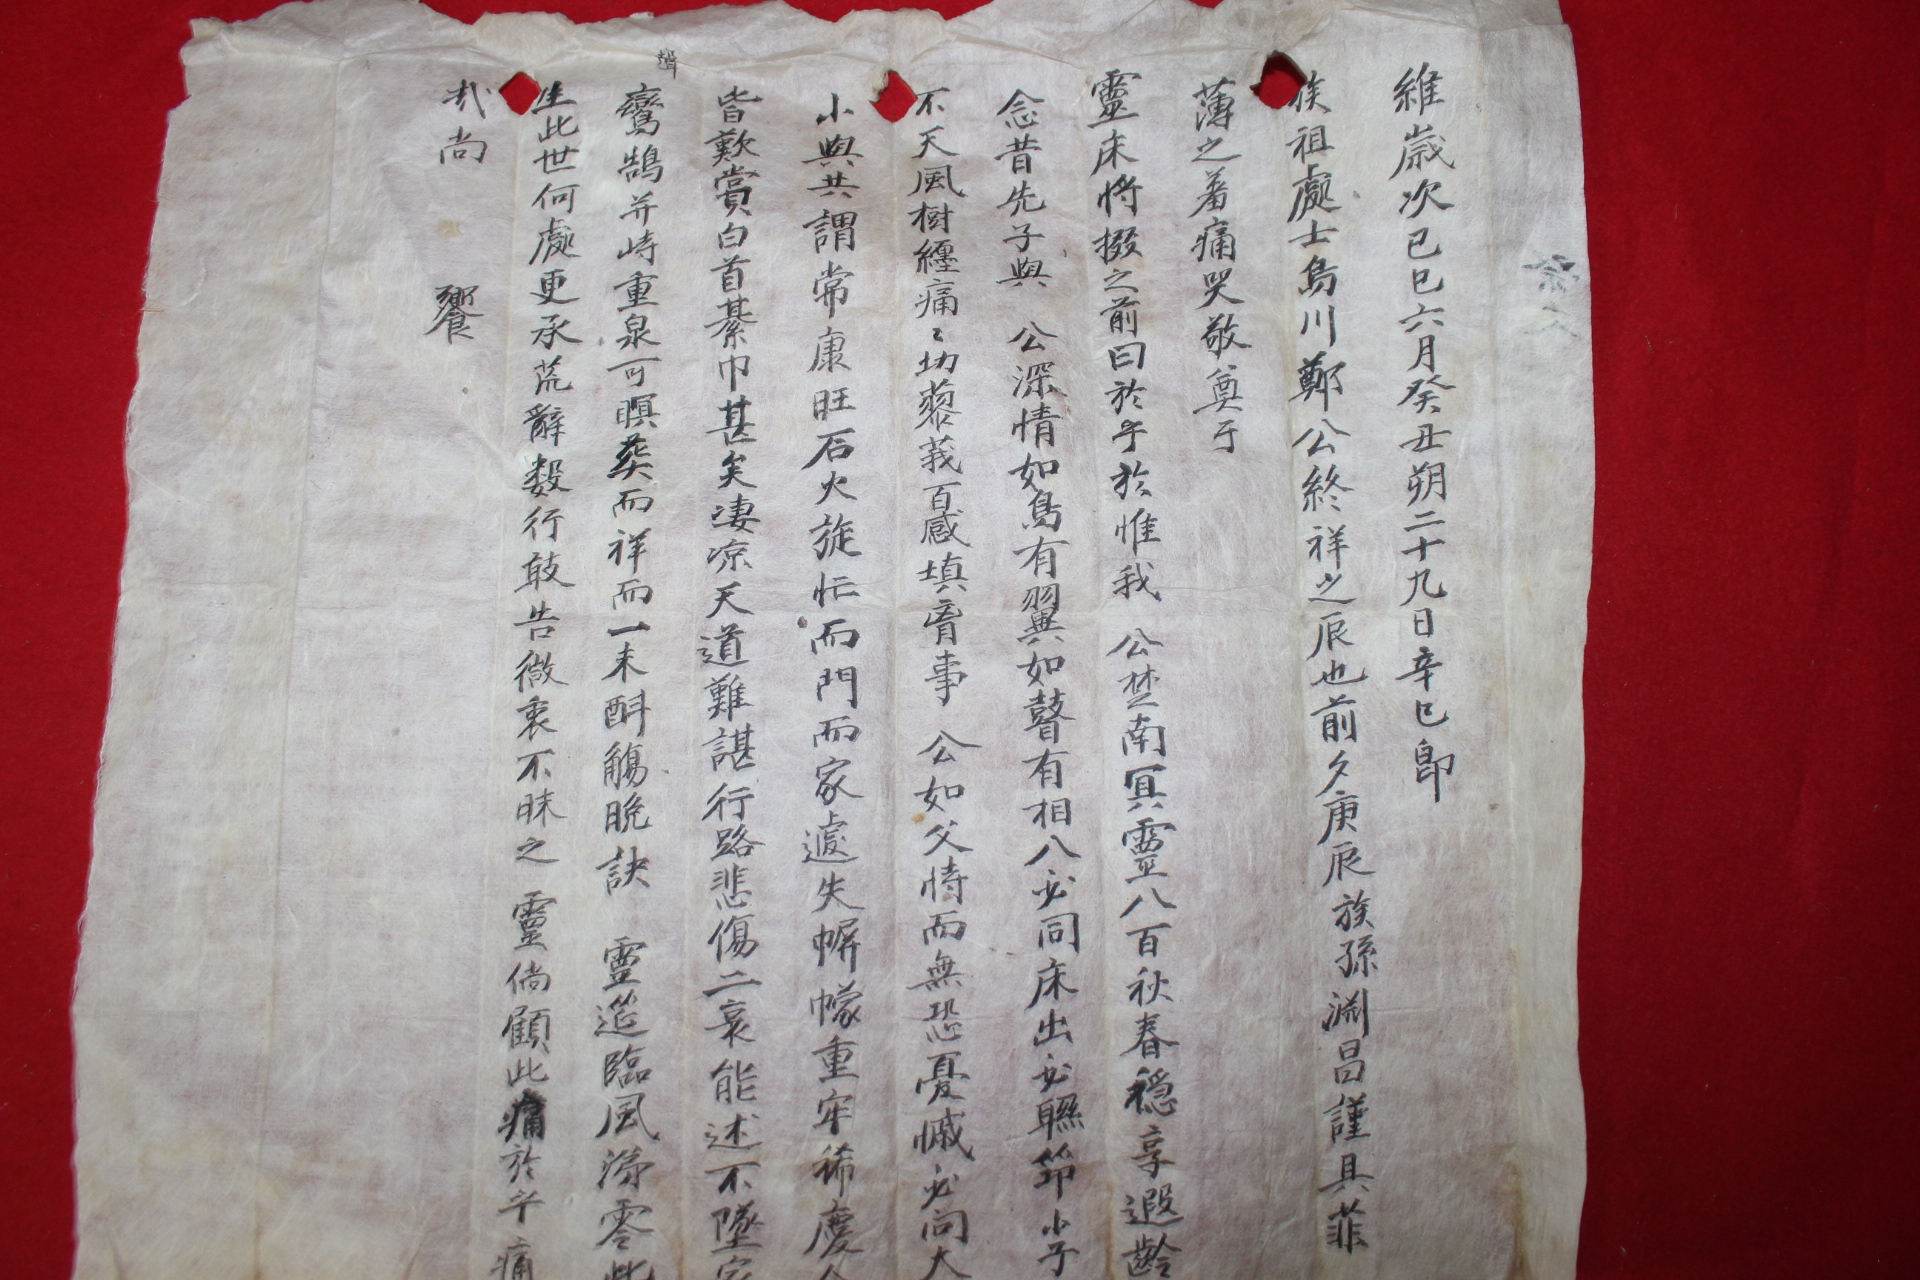 維歲次己巳六月癸丑朔二十九日辛巳卽
族祖處士烏川鄭公終祥之辰也前夕庚辰族孫淵昌謹具菲
薄之羞痛哭敬奠于
靈床將掇之前曰於乎於惟我 公楚南冥靈八百秋春穩享遐齡
念昔先子與 公深情如鳥有翼如瞽有相入必同床出必聯筇小子
不天風樹纏痛〻切蓼莪百感塡胷事 公如父恃而無恐憂慽必問大
小與共謂常康旺石火旋忙而門而家遽失帡幪重牢稀慶人
皆歎賞白首綦巾甚矣凄凉天道難諶行路悲傷二哀能述不墜家
聲
鸞鵠并峙重泉可瞑葬而祥而一未酹觴晩訣 靈筵臨風涕零此
生此世何處更承荒辭數行敢告微衷不昧之 靈倘顧此痛於乎痛
哉尙 饗